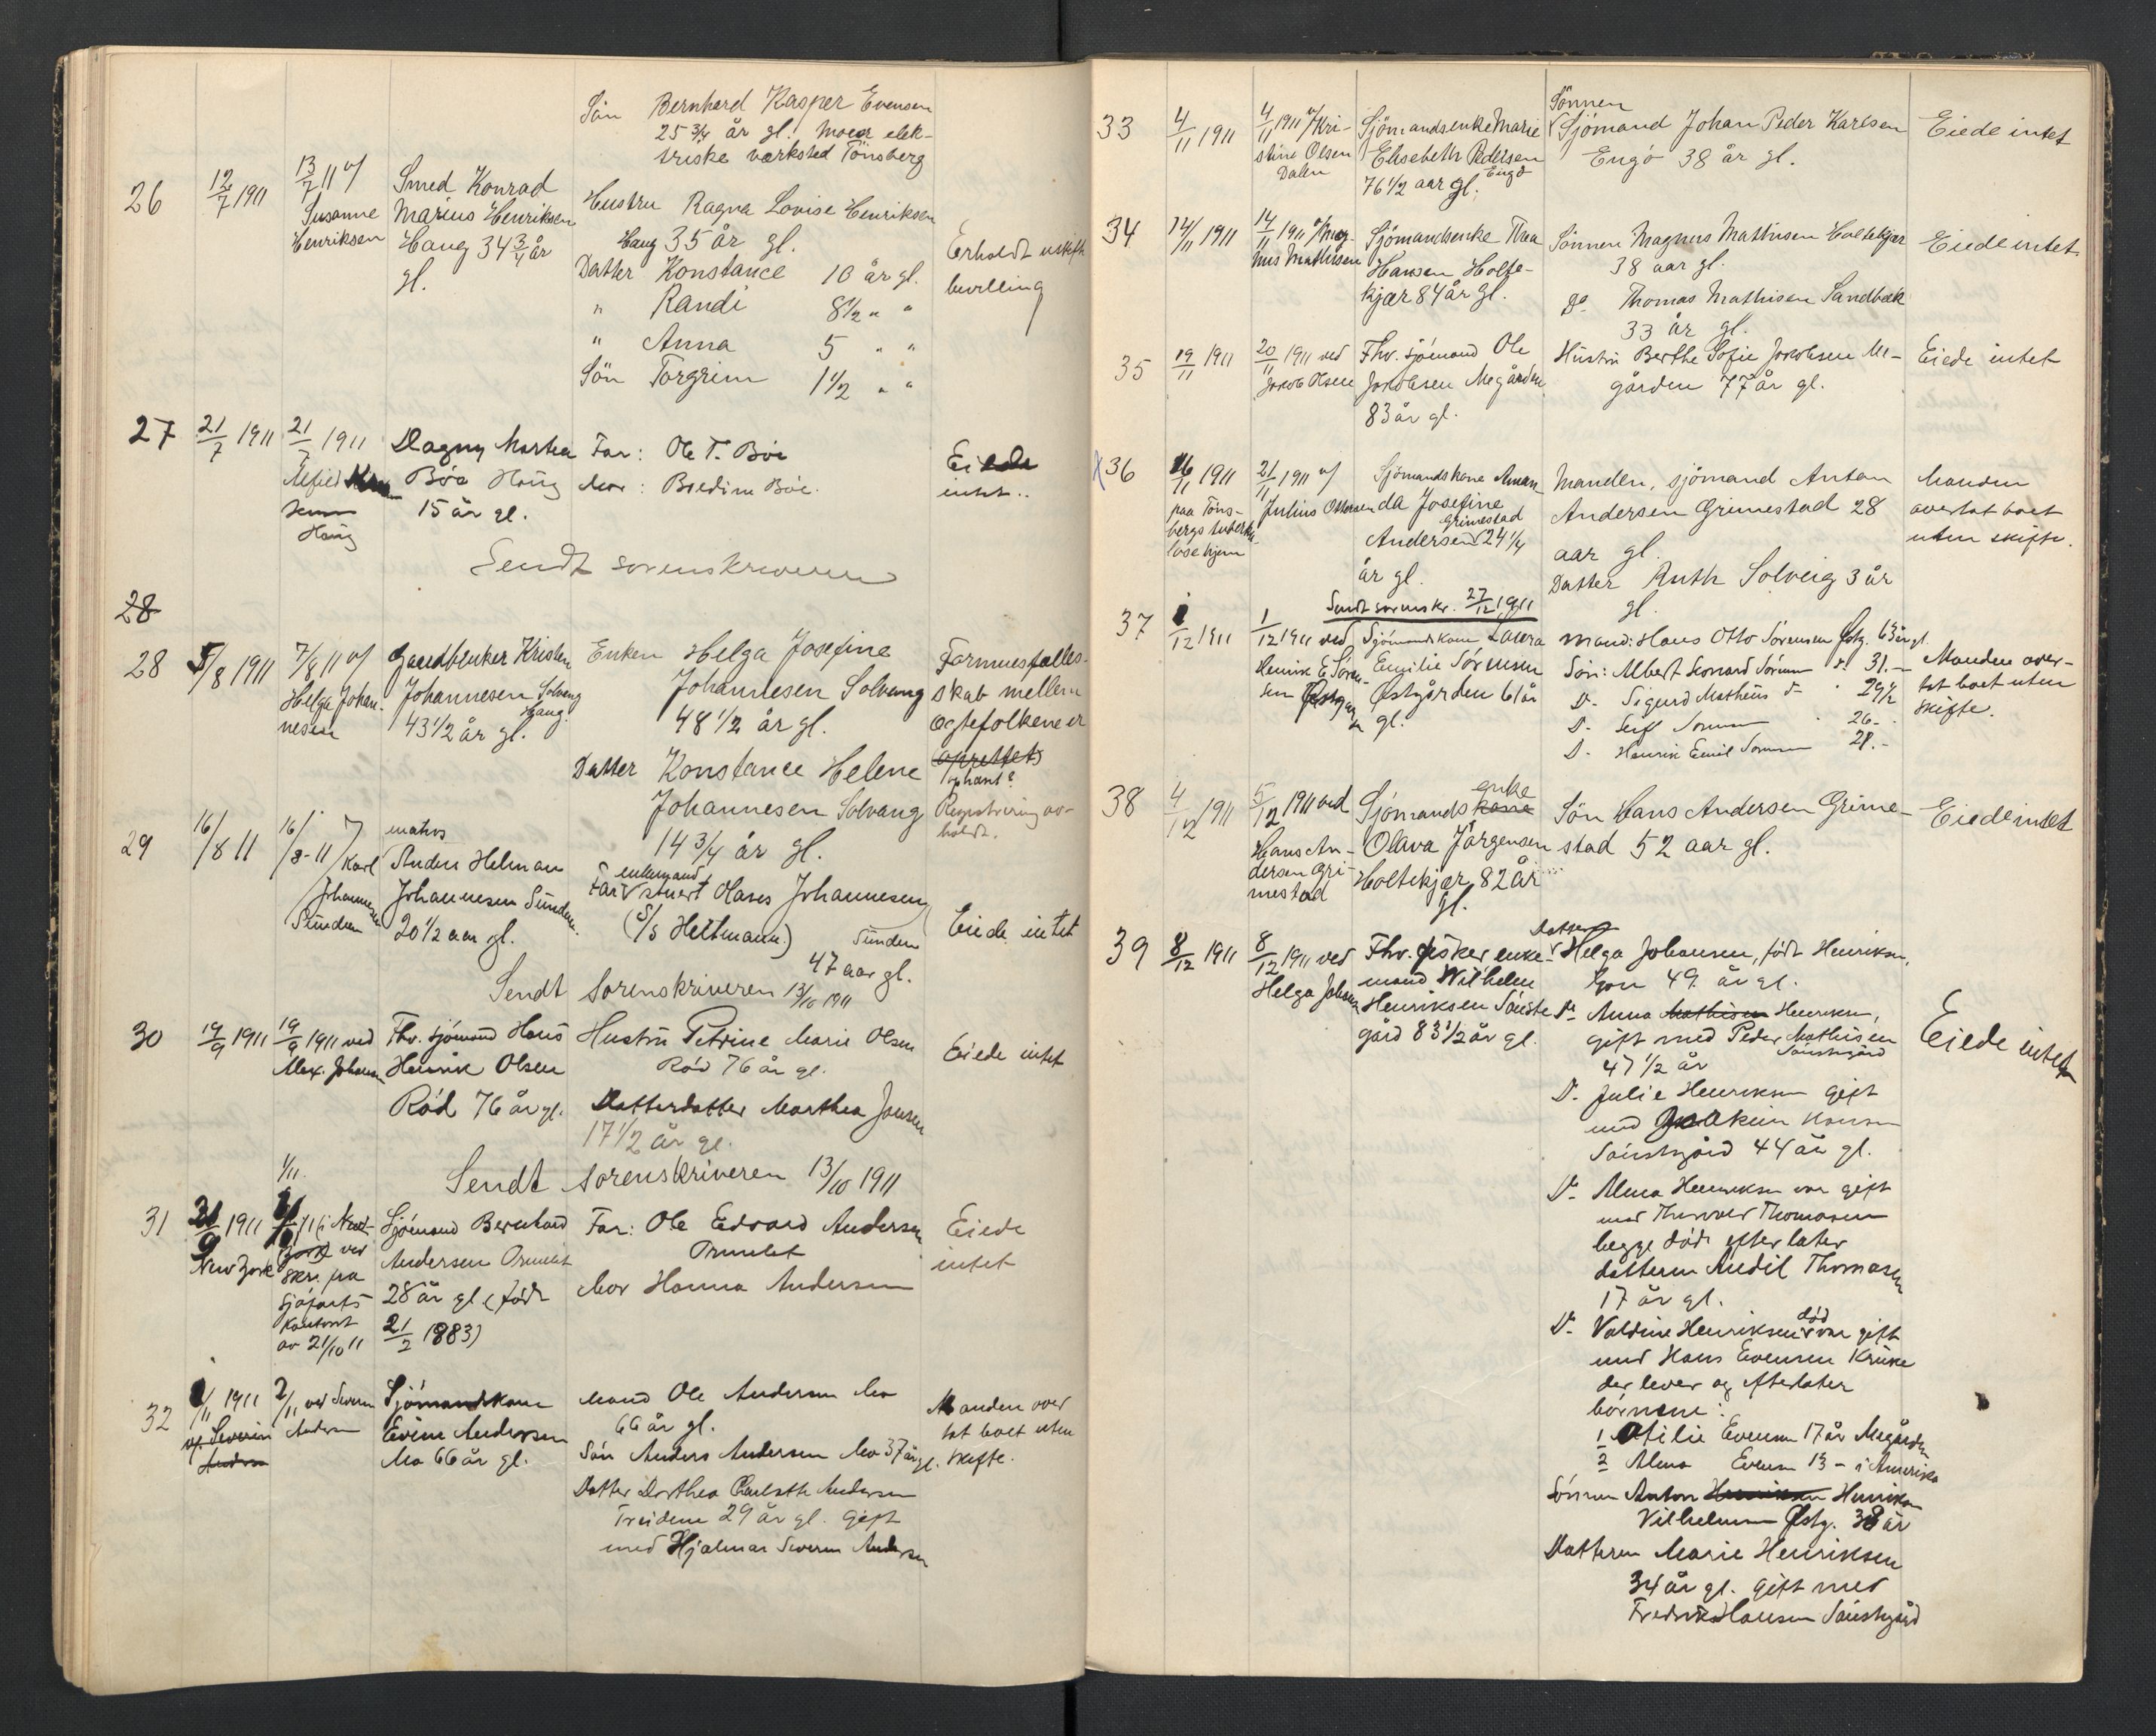 Sön Bernhard Kasper Evensen
25 3/4 år gl. Moen elek-
triske værksted Tönsberg
26
12/7 1911
13/7 11 v/
Susanne
Henriksen
Smed Konrad
Marius Henriksen
Haug 34 3/4 år
gl.
Hustru Ragna Lovise Henriksen
Haug 35 år gl.
Datter Konstance 10 år gl.
" Randi 8 1/2 " "
" Anna 5 " "
Sön Torgrim 1 1/2 " "
Erholdt uskifte
bevilling
27
21/7 1911
21/7 1911
Haug
Dagny Marthea
Böe Haug
15 år gl.
Far: Ole T. Böe
Mor: Bredine Böe.
Eiede
intet..
Sendt sorenskriveren
28
28
5/8 1911
7/8 11 v/
Helga Johan-
nesen
Gaardbruker Kristen
Johannesen Solvang
Haug.
43 1/2 år gl.
Enken Helga Josefine
Johannesen Solvang
48 1/2 år gl.
Datter Konstance Helene
Johannesen Solvang
14 3/4 år gl.
Formuesfælles-
skab mellem
egtefolkene er
oprettet
ophævt?
Registrering av-
holdt.
29
16/8 11
16/8-11 /
Karl
Johannesen
Sunden
matros
Anders Helman
Johannesen Sunden.
20 1/2 aar gl.
enkemand
Far stuert Hans Johannesen
(S/S Heitmann) Sunden
47 aar gl.
Eiede intet
Sendt sorenskriveren 13/10 1911
30
19/9 1911
19/9 1911 ved
Alex. Johansen
Fhv. sjömand Hans
Henrik Olsen
Röd 76 år gl.
Hustru Petrine Marie Olsen
Röd 76 år gl.
Datterdatter Marthea Jansen
17 1/2 år gl.
Eiede intet
Sendt sorenskriveren 13/10 1911
31
1911
New York
1/11.
ved
skr. fra
sjöfarts
kontoret
av 21/10 11
Sjömand Bernhard
Andersen Ormelet
28 år gl (födt
21/2 1883)
Far: Ole Edvard Andersen
Ormelet
Mor Hanna Andersen
Eiede
intet
32
1/11 1911
v/ Severin
Andersen
2/11 ved Severin
Andersen
Sjömandskone
Evine Andersen
Mo 66 år gl.
Mand Ole Andersen Mo
66 år gl.
Sön Anders Andersen Mo 37 år gl.
Datter Dorthea Andersen
29 år gl. gift
med Hjalmar Severin Andersen
Manden over
tat boet uten
skifte.
33
4/11 1911
4/11 1911 v/ Kri-
stine Olsen
Dalen
Sjömandsenke Marie
Elisebeth Pedersen
Engö
76 1/2 aar gl.
Sönnen
Sjömand Johan Peder Karlsen
Engö 38 år gl.
Eiede intet
34
14/11 1911
14/11 1911 v/ Mag-
nus Mathisen
Sjömandsenke Thea
Hansen Holte-
kjær 84 år gl.
Sönnen Magnus Mathisen Holtekjær
38 aar gl.
Do. Thomas Mathisen Sandbæk
33 år gl.
Eiede intet.
35
19/11 1911
20/11 1911 ved
Jakob Olsen
Fhv. sjömand Ole
Jakobsen Megården
83 år gl.
Hustru Berthe Sofie Jakobsen Me-
gården 77 år gl.
Eiede intet
36
16/11 1911
paa Töns-
bergs tuberku-
lösehjem
21/11 1911 v/
Julius Ottersen
Sjömandskone Aman-
da Josefine
Grimestad
Andersen 24 1/4
år gl.
Manden, sjömand Anton
Andersen Grimestad 28
aar gl.
Datter Ruth Solveig 3 år
gl.
Manden
overtat boet
uten skifte.
Sendt sorenskr. 27/12 1911
37
1/12 1911
1/12 1911 ved
Henrik E. Sören-
sen Østgår-
n
Sjömandskone Laura
Emilie Sörensen
Østgården 61 år
gl.
Mand: Hans Otto Sörensen Østg. 63 år gl.
Sön: Albert Leonard Sörensen d. 31.-
D. Sigurd Matheus d- 29 1/2
D. Leif Sörensen 26-
D. Henrik Emil Sörensen 21.-
Manden over-
tat boet uten
skifte.
38
4/12 1911
5/12 1911 ved
Hans An-
dersen Gri-
mestad
enke
Sjömandskone
Olava Jörgensen
Holtekjær, 82 år
gl.
Sön Hans Andersen Grime-
stad 52 aar gl.
Eiede intet
39
8/12 1911
8/12 1911 ved
Helga Johansen
Fhv. fisker enke-
mand Wilhelm
Henriksen Söndste
gård 83 1/2 år gl.
Datter
Helga Johansen, född Henriksen,
49 år gl.
D- Anna Mathisen Henriksen,
gift med Peder Mathisen
47 1/2 år
D. Julie Henriksen gift
med Joakim Hansen
44 år gl.
D- Alma Henriksen var gift
med Thomasen
begge döde efterlater
datteren Thomasen
17 år gl.
D. Valdine Henriksen död var gift
med Hans Evensen Kruke
der lever og efterlater
börnene:
1 Otilie Evensen 17 år Megården
2 Alma Evensen 13 - i Amerika
Sönnen Anton Henriksen Henriksen
Vilhelmsen Østg. 38 år
Datteren Marie Henriksen
34 år gl. gift med
Fredrik Hansen
Eiede intet